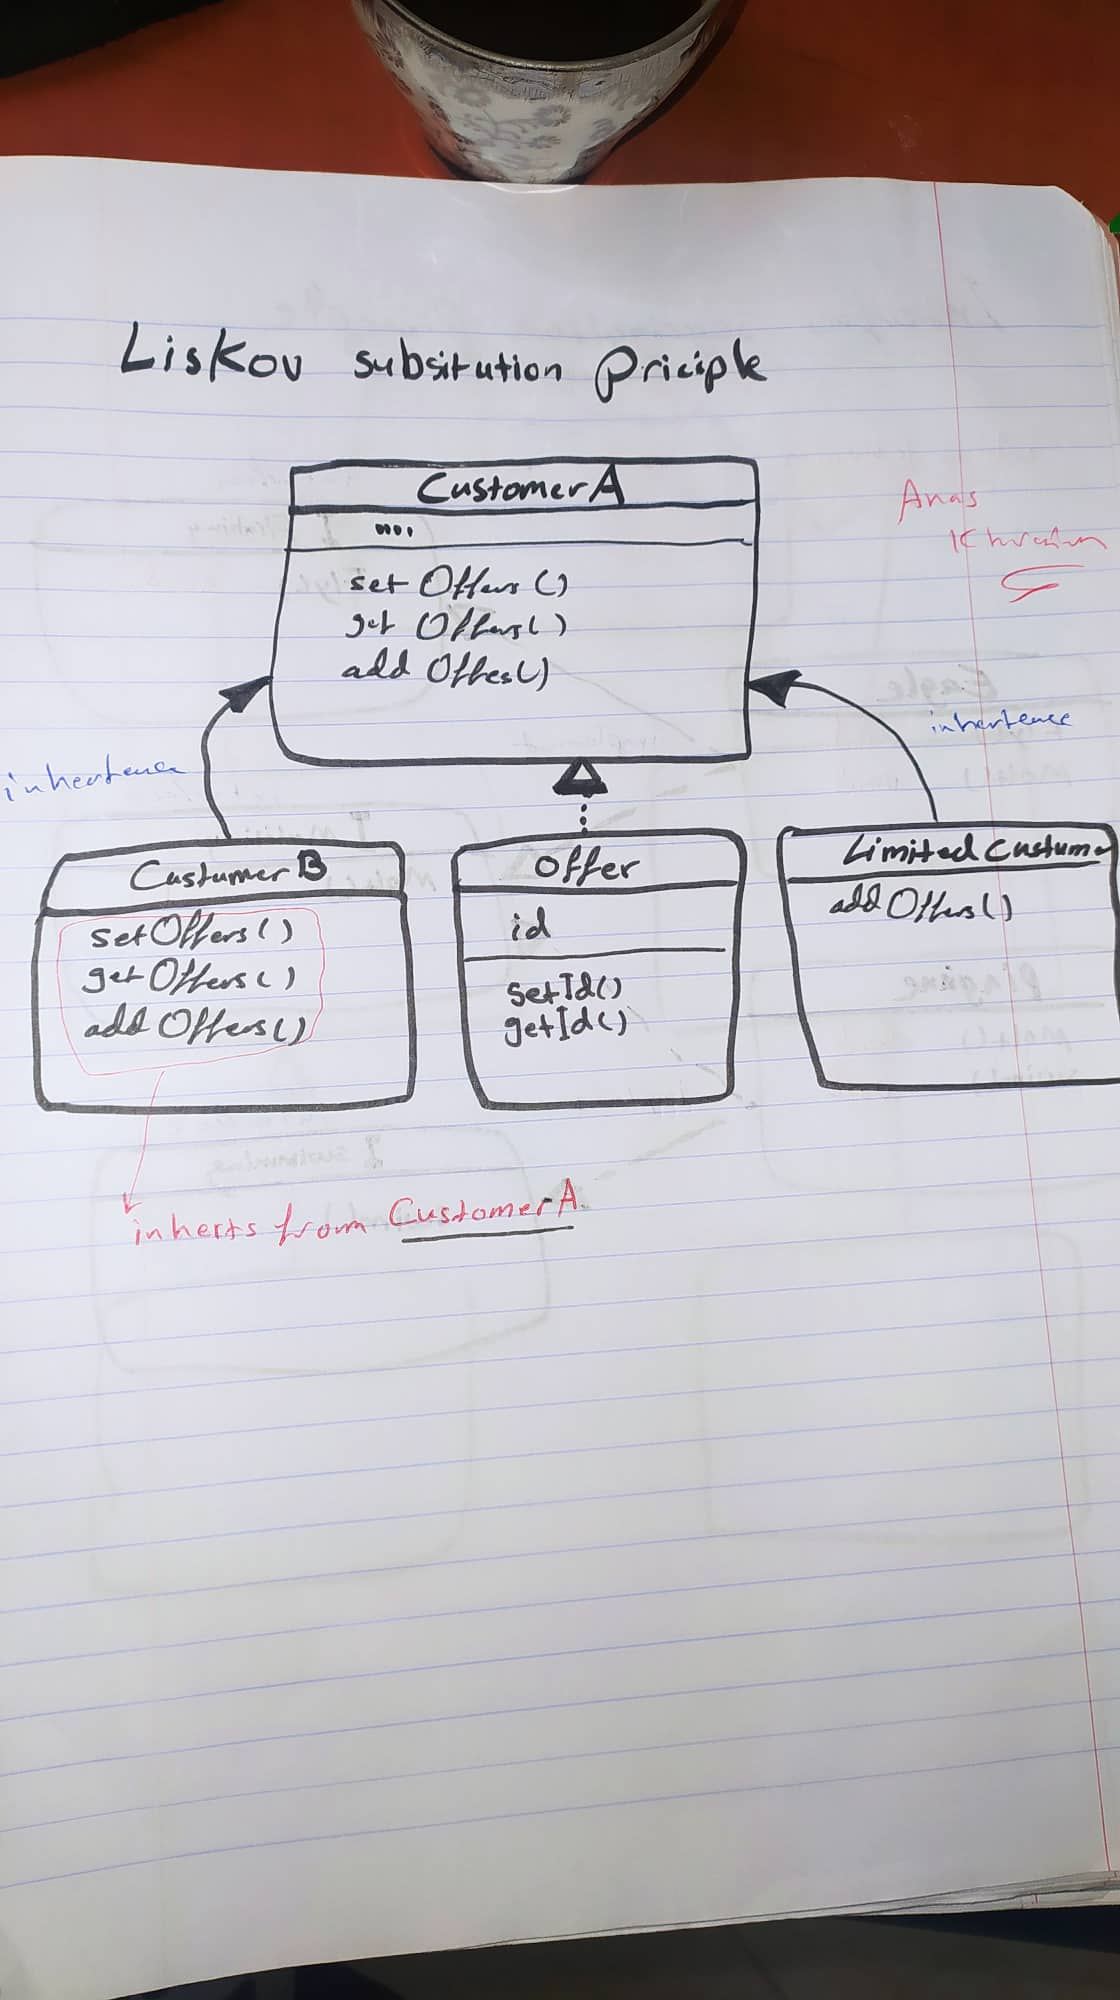 Liskov subsitution priciple
CustomerA
....
set Offers ()
get Offers()
add Offes()
Anas
inhertence
inhertence
CustumerB
setOffers()
getOffers()
add Offers()
Offer
id
setId()
getId()
Limited Custume
add Offers()
inherts from CustomerA